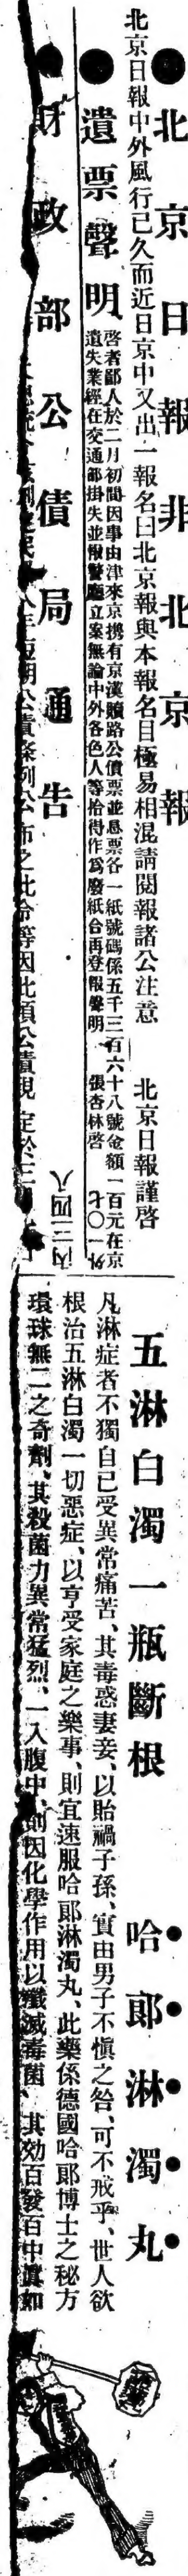 ●北京日報非北京報
北京日報中外風行已久而近日京中又出一報名曰北京報與本報名目極易相混請閱報諸公注意　北京日報謹啓
●遺票聲明
啓者鄙人於二月初間因事由津來京携有京漢贖路公債票並息票各一紙號碼係五千三百六十八號金額一百元在京
遺失業經在交通部掛失並報警廳立案無論中外各色人等拾得作爲廢紙合再登報聲明　張杏林啓
外一〇七
●財政部公債局通告
八年短期公債條例公布之此令等因此項公債現定於三
丙二四八
五淋白濁一瓶斷根　哈郞淋濁丸
凡淋症者不獨自已受異常痛苦、其毒惑妻妾、以貽禍子孫、實由男子不愼之咎、可不戒乎、世人欲
根治五淋白濁一切惡症、以亨受家庭之樂事、則宜速服哈郞淋濁丸、此藥係德國哈郞博士之秘方
環球無二之奇劑、其殺菌力異常猛烈、一入腹中、則因化學作用以殲滅毒菌、其効百發百中眞如